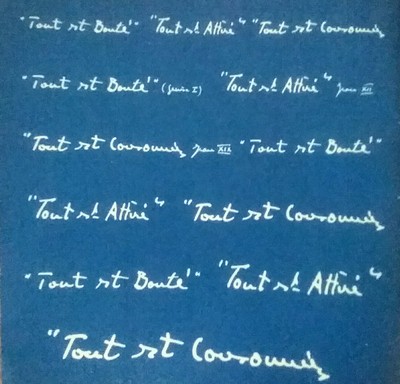 "Tout est Bonté" "Tout est Attiré" "Tout est Consommé
"Tout est Bonté" (Jean I) "Tout est Attiré" Jean XII
"Tout est Consommé Jean XIX "Tout est Bonté"
"Tout est Attiré" "Tout est Consommé
"Tout est Bonté" "Tout est Attiré"
"Tout est Consommé